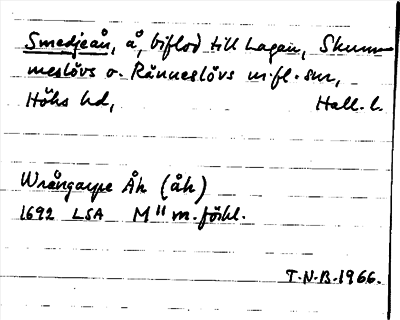 Smedjeån, å, biflod till Lagan, Skum-
meslövs o. Ränneslövs m.fl. snr,
Höks hd, Hall. l.
Wrångarpe Åh (åh)
1692 LSA M 11 m. förkl.
T.N.B. 1966.